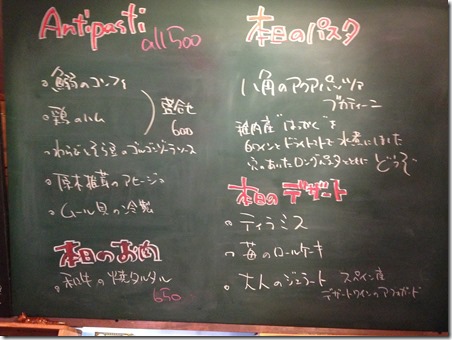 Antipasti
all 500
鰯のコンフィ
鶏のハム
盛合せ
600
わらびとそら豆のゴルゴンゾーラソース
原木椎茸のアヒージョ
ムール貝の冷製
本日のお肉
和牛の焼タルタル
650
本日のパスタ
八角のアクアパッツァ
ブカティーニ
稚内産"はっかく"を
白ワインとドライトマトで水煮にしました
穴のあいたロングパスタとともにどうぞ
本日のデザート
ティラミス
苺のロールケーキ
大人のジェラート
スペイン産
デザートワインのアフォガード